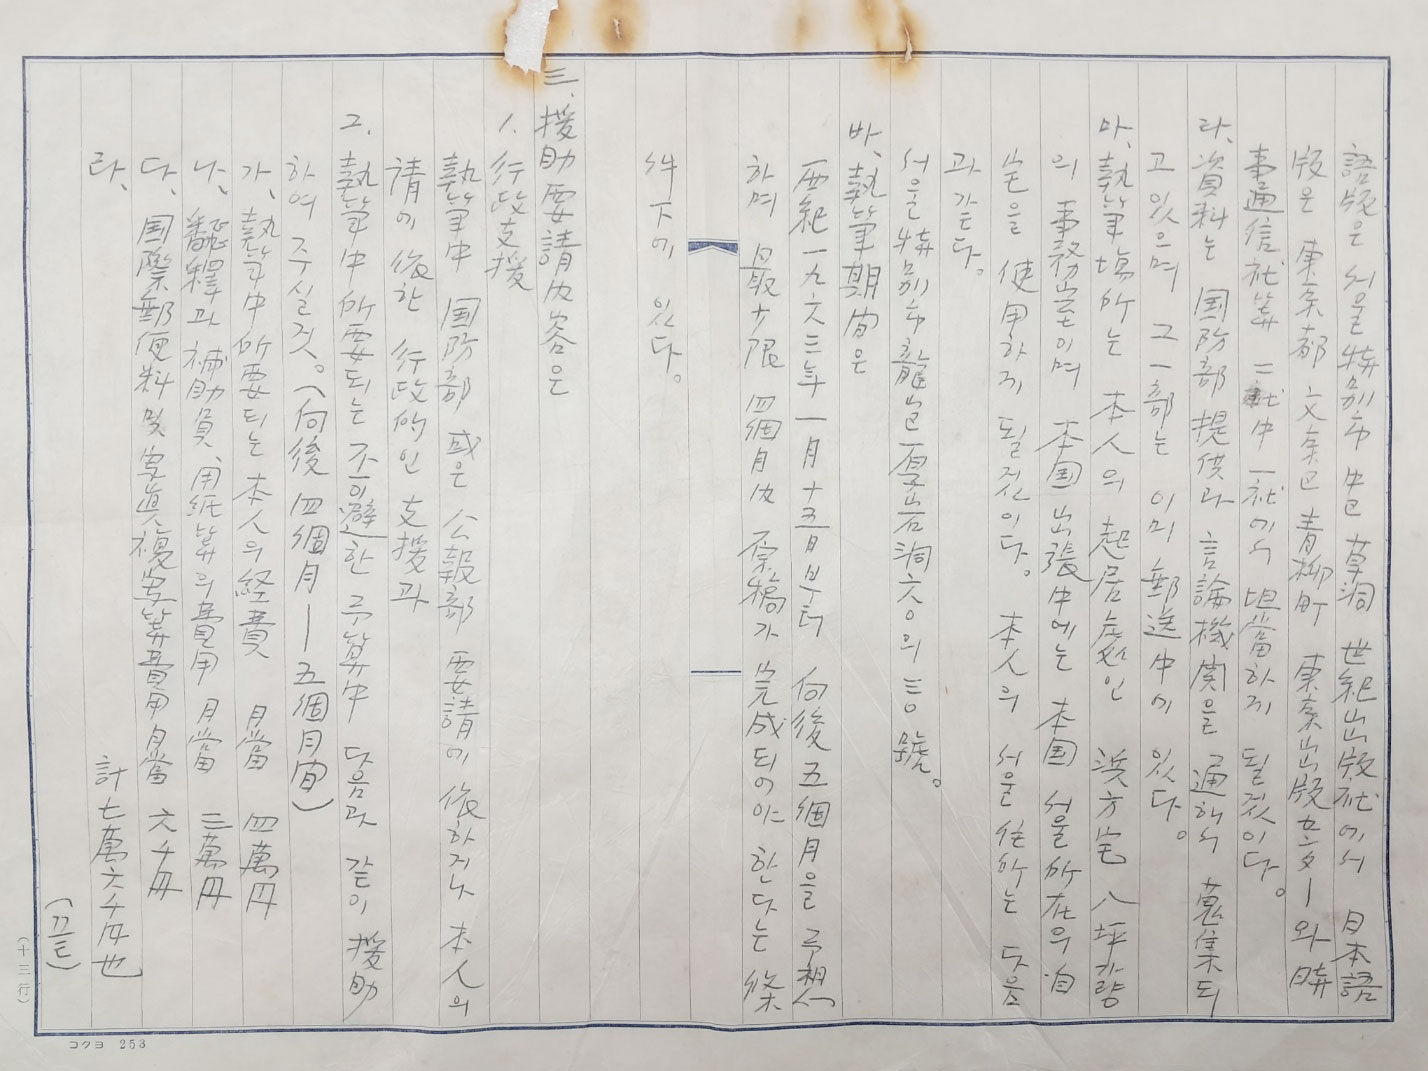 語版은 서울特別市 中區 草洞 世紀出版社에서 日本語
版은 東京都 文京區 青柳町 東京出版센ター와 時
事通信社等 二社中 一社에서 担當하게 될것이다。
라、資料는 国防部 提供과 言論機関을 通해서 蒐集되
고 있으며 그 一部는 이미 郵送中에 있다。
마、執筆場所는 本人의 起居處인 浜方宅 八坪량
의 事務室이며 本国 出張中에는 本国 서울 所在의 自
宅을 使用하게 될것이다。 本人의 서울 住所는 다음
과 같다。
서울特別市 龍山區 厚岩洞 六〇의 三〇號。
바、執筆期間은
西紀一九六三年 一月十五日부터 向後 五個月을 予想
하며 最少限 四個月內 原稿가 完成되어야 한다는 條
件下에 있다。
三、援助要請內容은
1. 行政支援
執筆中 国防部 或은 公報部 要請에 依하거나 本人의
請에 依한 行政的인 支援과
2. 執筆中 所要되는 不可避한 予算中 다음과 같이 援助
하여 주실것。(向後 四個月—五個月間)
가、執筆中 所要되는 本人의 経費 月當 四萬円
나、飜釋과 補助員、用紙等의 費用 月當 三萬円
다、国際郵便料 및 写眞複写等 費用 月當 六千円
라、 計七萬六千円也
(끝)
(十三行)
コクヨ 253